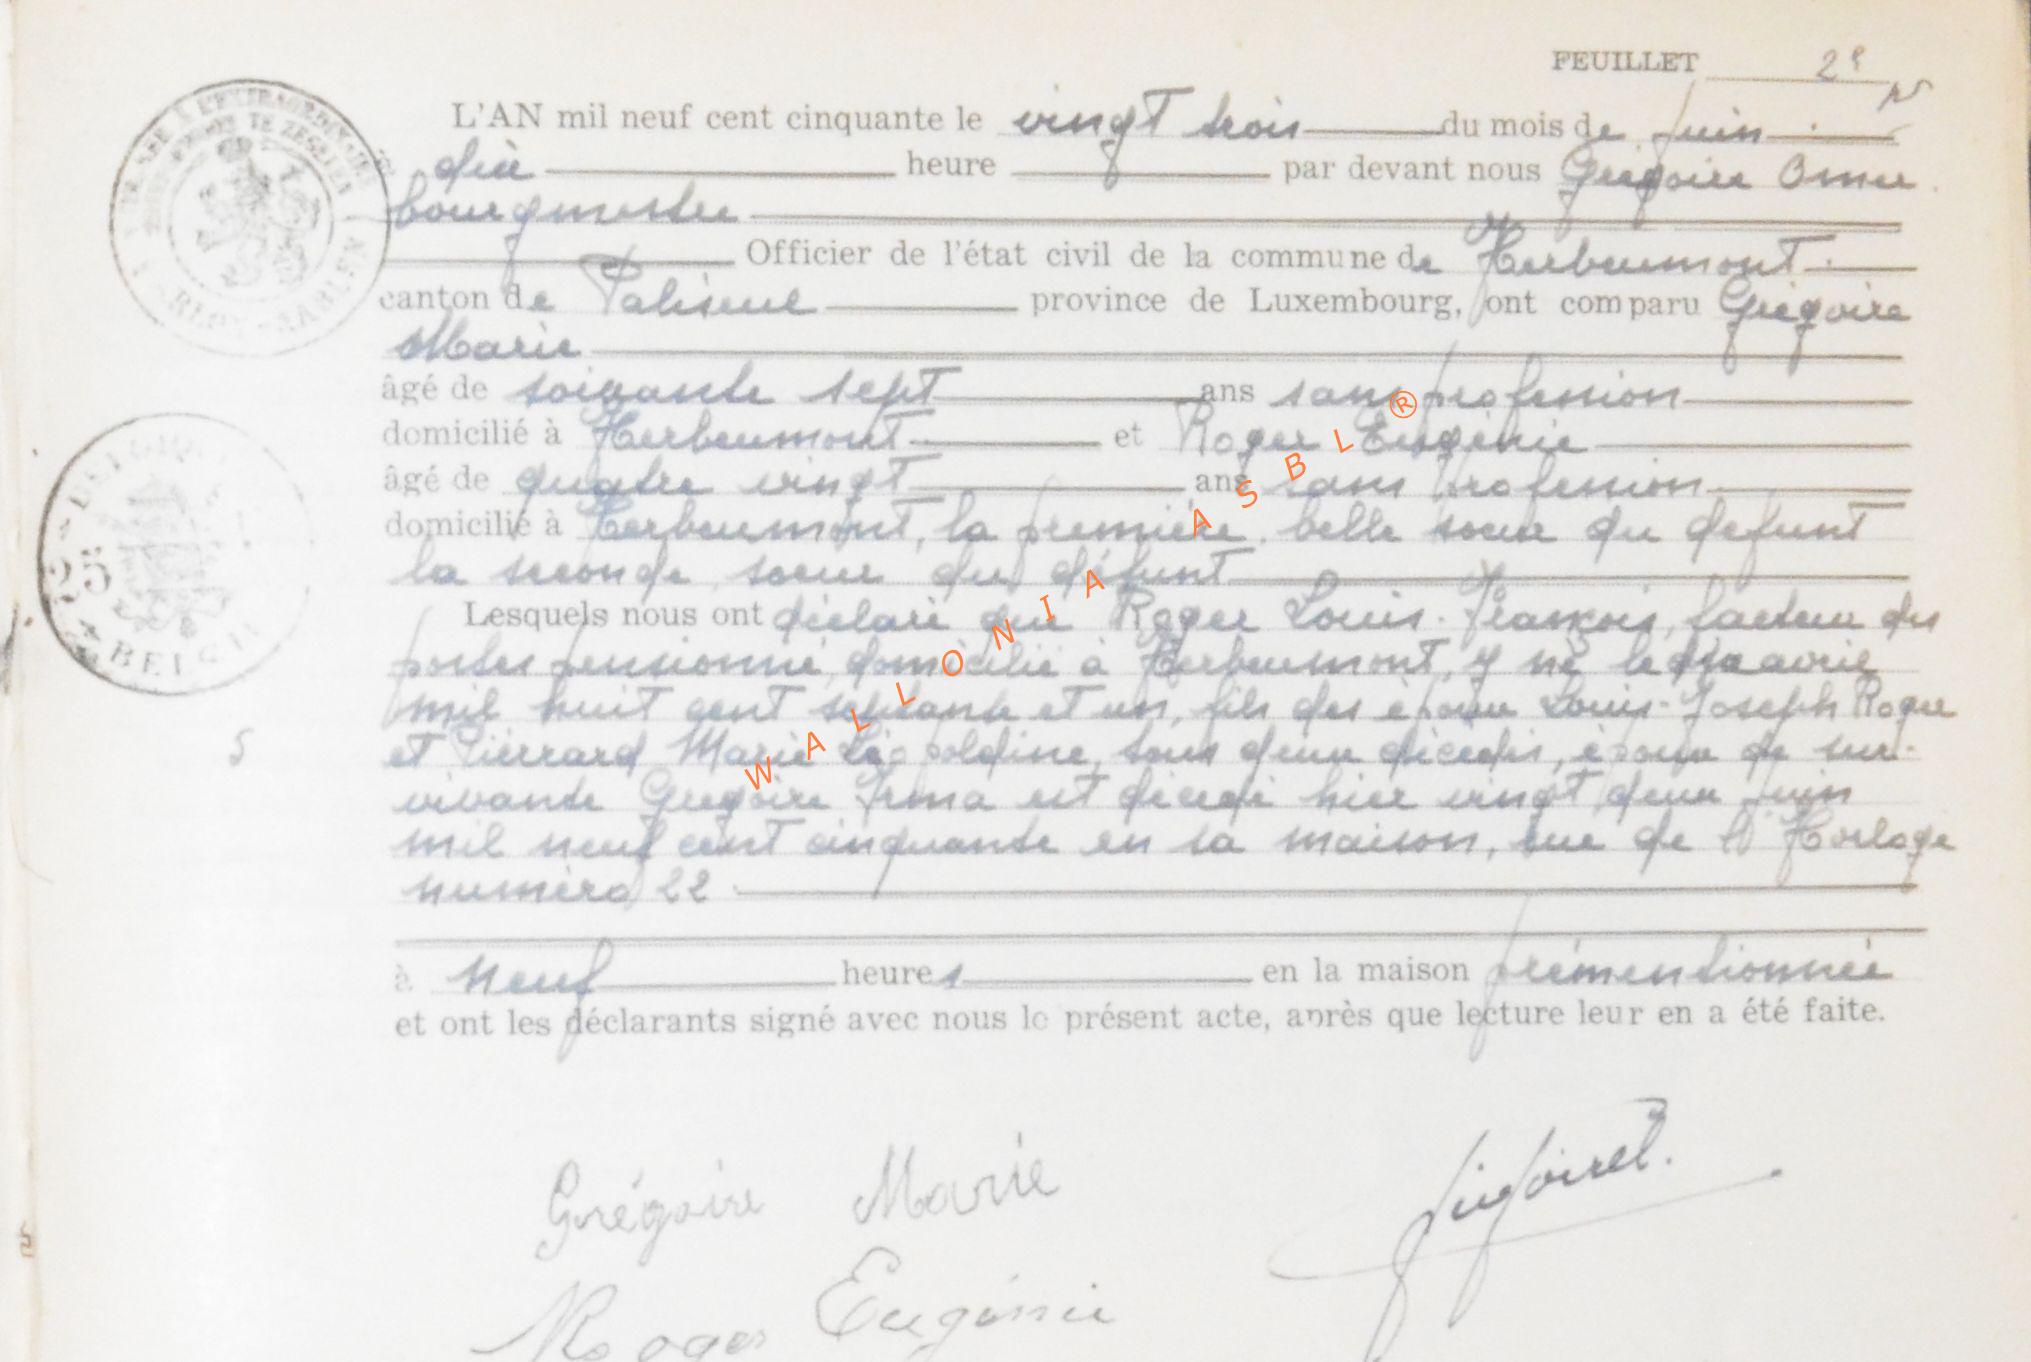 FEUILLET 2e
L'AN mil neuf cent cinquante le vingt trois du mois de juin
à dix heure par devant nous Grégoire Omer
bourgmestre
Officier de l'état civil de la commune de Herbeumont
canton de Paliseul province de Luxembourg, ont comparu Grégoire
Marie
âgé de soixante sept ans sans profession
domicilié à Herbeumont et Roger Eugénie
âgé de quatre vingt ans sans profession
domicilié à Herbeumont, la première belle soeur du defunt
la seconde soeur du défunt
Lesquels nous ont déclaré que Roger Louis-François, facteur des
postes pensionné, domicilié à Herbeumont, y né le dix avril
mil huit cent septante et un, fils des époux Louis-Joseph Roger
et Pierrard Marie Léopoldine, tous deux décédés, époux de sur-
vivante Grégoire Irma est décédé hier vingt deux juin
mil neuf cent cinquante en sa maison, rue de l'Horloge
numéro 22
à neuf heures en la maison prémentionnée
et ont les déclarants signé avec nous le présent acte, après que lecture leur en a été faite.
5
25
BELGIE
WALLONIA ASBL ®
Grégoire Marie
Roger Eugénie